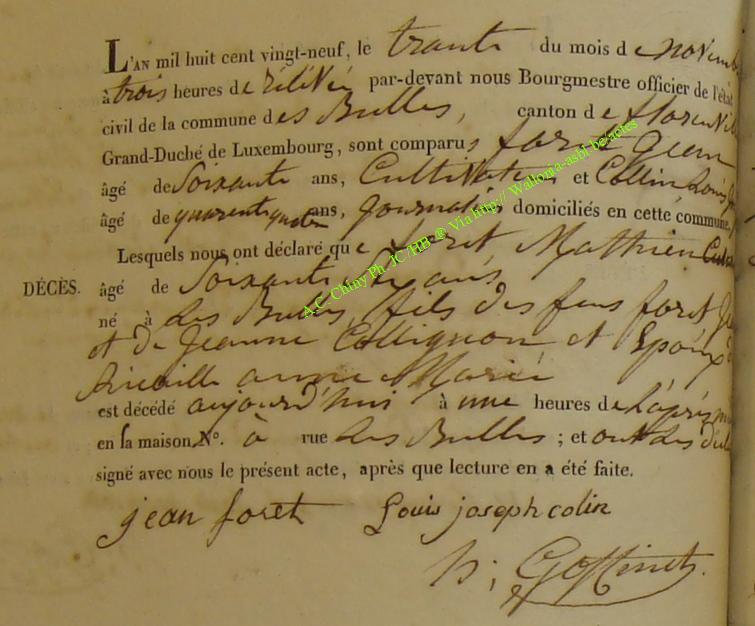 L'AN mil huit cent vingt-neuf, le trante du mois de novemb
à trois heures de relevé par-devant nous Bourgmestre officier de l'état
civil de la commune des Bulles, canton de florenvill
Grand-Duché de Luxembourg, sont comparus foret Jean
âgé de Soixante ans, Cultivateur et Collin Louis
âgé de quarente quatre ans, Journalier domiciliés en cette commune,
Lesquels nous ont déclaré que foret Mathieu
DÉCÈS. âgé de Soixante ans
né à Les Bulles, fils des feus foret
et de Jeanne Collignon et Epoux
anne Marie
est décédé aujourd'hui à une heures de l'après mi
en sa maison N°. à rue Les Bulles ; et ont les
signé avec nous le présent acte, après que lecture en a été faite.
jean foret Louis joseph colin
h; Goffinet
A.C Chiny Ph. JC/HB @ Via http// Wallonia-asbl.be/actes